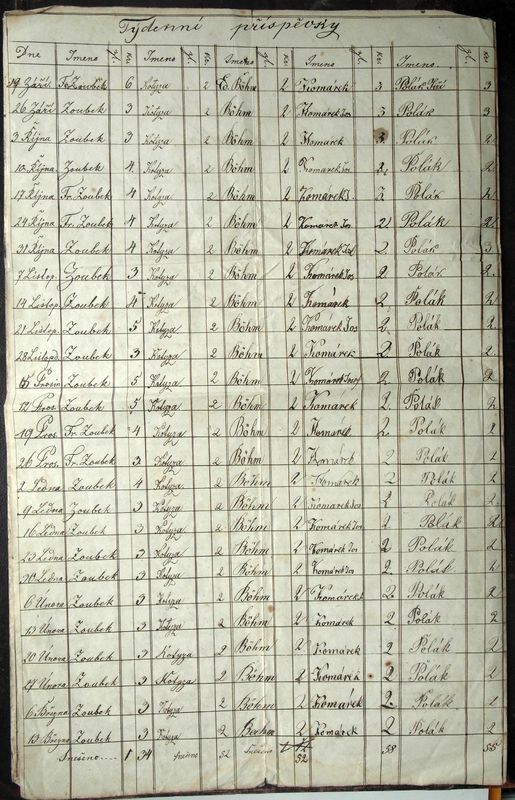 Týdenní příspěvky
Dne Jmeno zl. kr. Jmeno zl. kr. Jmeno kr. Jmeno kr. Jmeno zl. kr.
19 Září Fr. Zoubek 6 Kotyza 2 Ed. Böhm 2 Komárek 3 Polák 3
26 Září Zoubek 3 Kotyza 2 Böhm 2 Komárek Jos 3 Polák 3
3 Října Zoubek 3 Kotyza 2 Böhm 2 Komarek 3 Polák 2
10 Října Zoubek 4 Kotyza 2 Böhm 2 Komarek Jos 2 Polák 2
17 Října Fr. Zoubek 4 Kotyza 2 Böhm 2 Komárek J. 3 Polák 2
24 Října Fr. Zoubek 4 Kotyza 2 Böhm 2 Komarek Jos. 2 Polák 2
31 Října Zoubek 4 Kotyza 2 Böhm 2 Komárek Jos 2 Polák 3
7 Listop. Zoubek 3 Kotyza 2 Böhm 2 Komárek Jos 2 Polák 2
14 Listop. Zoubek 4 Kotyza 2 Böhm 2 Komárek 2 Polák 2
21 Listop. Zoubek 5 Kotyza 2 Böhm 2 Komárek Jos 2 Polák 2
28 Listopad. Zoubek 3 Kotyza 2 Böhm 2 Komárek 2 Polák 2
Prosin Zoubek 5 Kotyza 2 Böhm 2 Komárek Josef 2 Polák 2
12 Pros Zoubek 5 Kotyza 2 Böhm 2 Komárek 2 Polák 2
19 Pros Fr. Zoubek 4 Kotyza 2 Böhm 2 Komarek 2 Polák 2
26 Pros. Fr. Zoubek 3 Kotyza 2 Böhm 2 Komarek 2 Polák 2
2 Ledna Zoubek 4 Kotyza 2 Böhm 2 Komarek 2 Polák 2
9 Ledna Zoubek 3 Kotyza 2 Böhm 2 Komarek Jos 2 Polák 2
16 Ledna Zoubek 3 Kotyza 2 Böhm 2 Komárek Jos 2 Polák 2
23 Ledna Zoubek 3 Kotyza 2 Böhm 2 Komárek Jos 2 Polák 2
30 Ledna Zoubek 3 Kotyza 2 Böhm 2 Komárek Jos 2 Polák 2
6 Unora Zoubek 3 Kotyza 2 Böhm 2 Komárek 2 Polák 2
13 Unora Zoubek 3 Kotyza 2 Böhm 2 Komárek 2 Polák 2
20 Unora Zoubek 3 Kotyza 2 Böhm 2 Komárek 2 Polák 2
27 Unora Zoubek 3 Kotyza 2 Böhm 2 Komárek 2 Polák 2
6 Března Zoubek 3 Kotyza 2 Böhm 2 Komárek 2 Polák 2
13 Března Zoubek 3 Kotyza 2 Böhm 2 Komárek 2 Polák 2
Sneseno 1 34 52 Sneseno 52 58 55